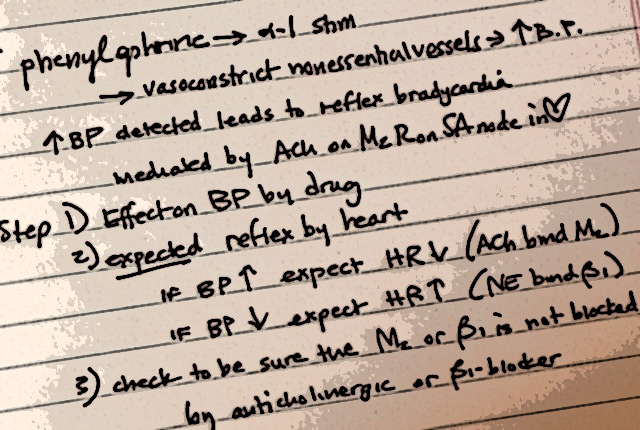 phenylephrine → α-1 stim
→ vasoconstrict nonessential vessels → ↑ B.P.
↑ BP detected leads to reflex bradycardia
mediated by Ach on M2R on SA node in ♡
Step 1) Effect on BP by drug
2) expected reflex by heart
if BP ↑ expect HR ↓ (Ach bind M2)
if BP ↓ expect HR ↑ (NE bind β1)
3) check to be sure the M2 or β1 is not blocked
by anticholinergic or β1-blocker